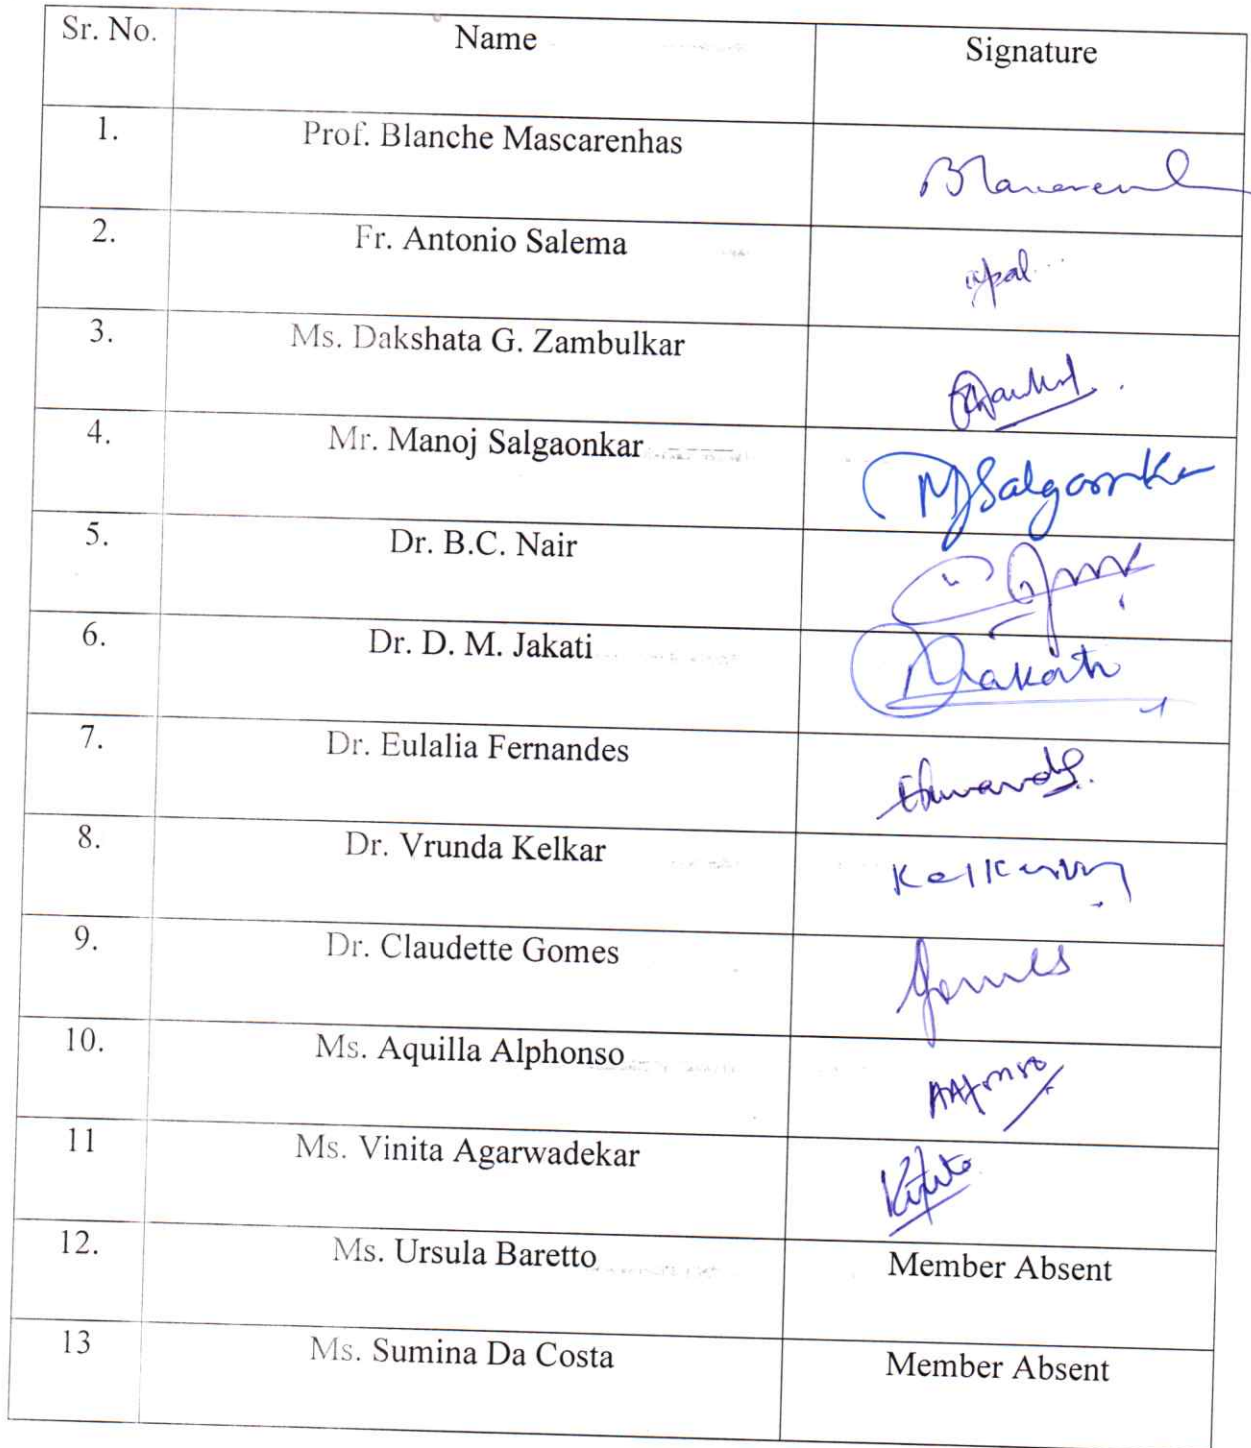 Sr. No. Name Signature
1. Prof. Blanche Mascarenhas
2. Fr. Antonio Salema
3. Ms. Dakshata G. Zambulkar
4. Mr. Manoj Salgaonkar MSalgaonkar
5. Dr. B.C. Nair
6. Dr. D. M. Jakati
7. Dr. Eulalia Fernandes
8. Dr. Vrunda Kelkar
9. Dr. Claudette Gomes
10. Ms. Aquilla Alphonso
11 Ms. Vinita Agarwadekar
12. Ms. Ursula Baretto Member Absent
13 Ms. Sumina Da Costa Member Absent